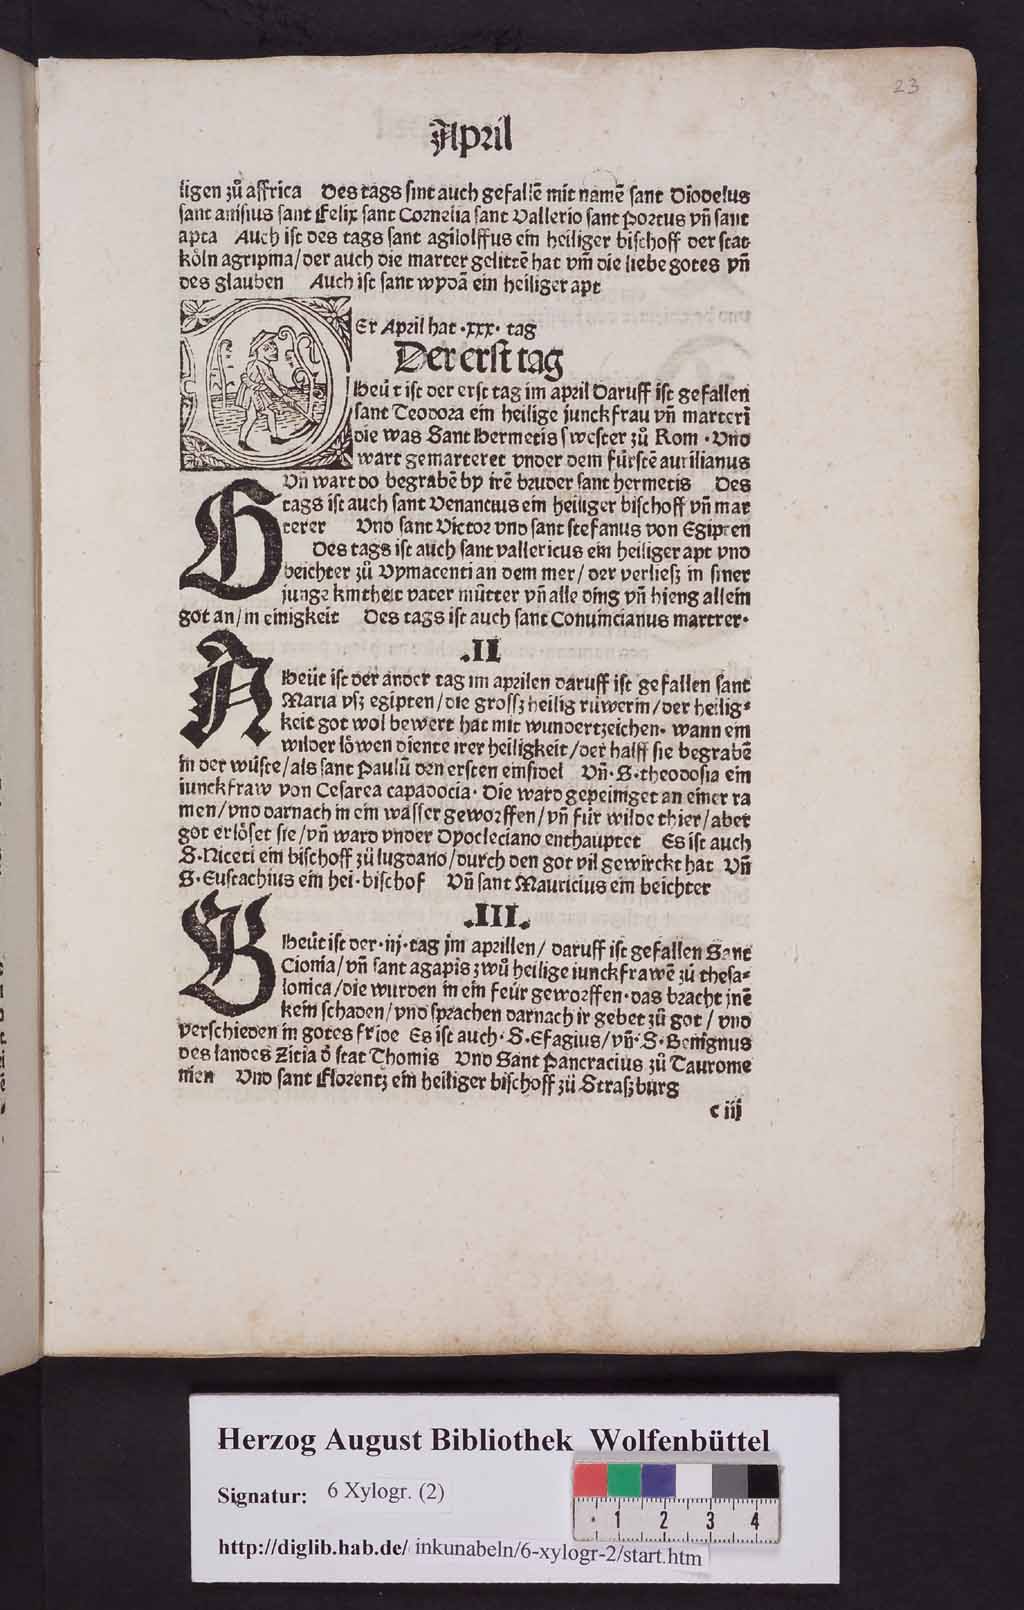 23
April
ligen zů affrica Des tags sint auch gefallẽ mit namẽ sant Diodelus
sant anisius sant Felix sant Cornelia sant Vallerio sant Portus vñ sant
apta Auch ist des tags sant agilolffus ein heiliger bischoff der stat
köln agripina/der auch die marter gelittẽ hat vm̃ die liebe gotes vñ
des glauben Auch ist sant wydã ein heiliger apt
DEr April hat ·xxx· tag
Der erst tag
Heüt ist der erst tag im april Daruff ist gefallen
sant Teodora ein heilige junckfrau vñ marterĩ
die was Sant Hermetis swester zů Rom ·Vnd
wart gemarteret vnder dem fürstẽ aurilianus
Vñ wart do begrabẽ by irẽ bruder sant hermetis Des
G tags ist auch sant Venancius ein heiliger bischoff vñ mar
terer Vnd sant Victor vnd sant stefanus von Egipten
Des tags ist auch sant vallericus ein heiliger apt vnd
beichter zů Vymacenti an dem mer/der verließ in siner
junge kintheit vater můtter vñ alle ding vñ hieng allein
got an/in einigkeit Des tags ist auch sant Conuincianus martrer·
.II
A Heüt ist der ander tag im aprilen daruff ist gefallen sant
Maria vsz egipten/die grossz heilig rüwerin/der heilig⸗
keit got wol bewert hat mit wundertzeichen· wann ein
wilder löwen diente irer heiligkeit/der halff sie begrabẽ
in der wüste/als sant Paulũ den ersten einsidel Vñ·S·theodosia ein
iunckfraw von Cesarea capadocia· Die ward gepeiniget an einer ra
men/vnd darnach in ein wasser geworffen/vñ für wilde thier/aber
got erlöset sie/vñ ward vnder Dyocleciano enthauptet Es ist auch
S·Niceti ein bischoff zů lugdano/durch den got vil gewirckt hat Vñ
S·Eustachius ein hei·bischof Vñ sant Mauricius ein beichter
.III.
B Heüt ist der·iij·tag jm aprillen/daruff ist gefallen Sant
Cionia/vñ sant agapis zwů heilige iunckfrawẽ zů thesa⸗
lonica/die wurden in ein feür geworffen·das bracht jnẽ
kein schaden/vnd sprachen darnach ir gebet zů got/vnd
verschieden in gotes fride Es ist auch·S·Efagius/vñ·S·Benignus
des landes Zitia d̾ stat Thomis Vnd Sant Pancracius zů Taurome
nien Vnd sant Florentz ein heiliger bischoff zů Straßburg
c iij
Herzog August Bibliothek Wolfenbüttel
Signatur: 6 Xylogr. (2)
1 2 3 4
http://diglib.hab.de/inkunabeln/6-xylogr-2/start.htm